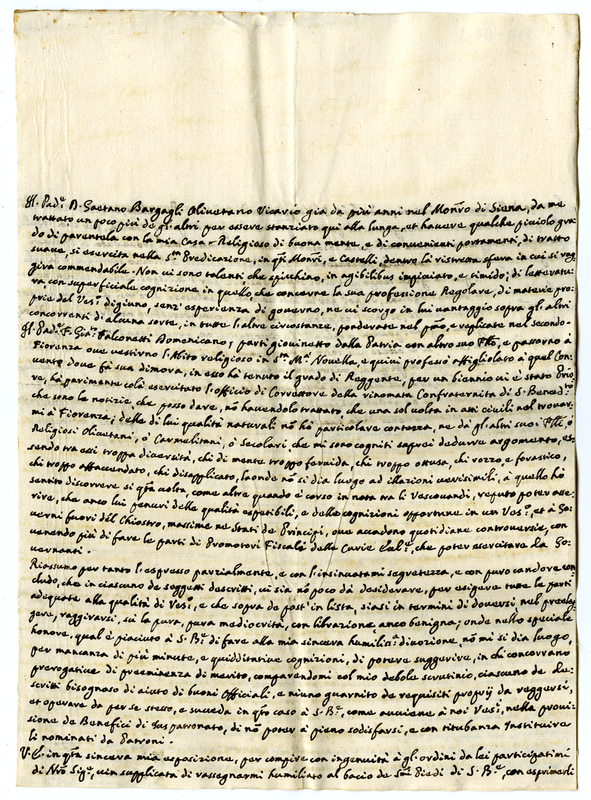 Il Pad.e D. Gaetano Bargagli Olivetano Vicario già da più anni nel Mon.ro di Siena, da me
trattato un poco più de gli altri per essere stanziato qui alla lunga, et havere qualche picciolo gra
do di parentela con la mia Casa. Religioso di buona mente, e di convenienti portamenti, di tratto
suave, si esercita nella S.ta Predicazione, in q.sti Mon.ri, e Castelli, dentro la ristretta sfera in cui si rag
gira commendabile. Non vi sono talenti che spicchino, in agibilibus impicciato, e timido; di letteratu
ra, con superficiale cognizione in quello, che concerne la sua professione Regolare, di materie pro
prie del Ves.o digiuno, senz'esperienza di governo, ne vi scorgo in lui vantaggio sopra gli altri
concorrenti di alcuna sorte, in tutte l'altre circostanze, ponderate nel p.mo, e replicate nel secondo.
Il Pad.e F. Gia: Falconetti Domenicano; partì giovinetto dalla Patria con altro suo F.llo, e passorno à
Fiorenza, ove vestirno l'Abito religioso in S.ta M.a Novella, e quivi professò affigliolato à quel Con
vento dove fà sua dimora, in esso hà tenuto il grado di Reggente, per un biennio vi è stato Prio
re, hà parimente colà esercitato l'offizio di Correttore della rinomata Confraternita di S. Bened.to
che sono le notizie, che posso dare, nõ havendolo trattato, che una sol volta in atti civili nel trovar
mi à Fiorenza; delle di lui qualità naturali nõ hò particolare contezza, ne dà gl'altri suoi F.lli, ò
Religiosi Olivetani, ò Carmelitani, ò Secolari che mi sono cogniti saprei dedurre argomento, es
sendo tra essi troppa diversità, chi di mente troppo fervida, chi troppo ottusa, chi rozzo, e forastico,
chi troppo attaccendato, chi disapplicato, laonde nõ si dia luogo ad illazioni verisimili, à quello hò
sentito discorrere si q.sta volta, come altre quando è corso in nota tra li Vescovandi, reputo poter ase
rire, che anco lui penuri delle qualità expetibili, e delle cognizioni opportune in un Ves.o, et à Go
verni fuori del Chiostro, massime ne Stati de Principi, ove accadono quotidiane controversie, con
venendo più di fare le parti di Promotori Fiscali delle Curie Eccl.e, che poter esercitare da Go
vernanti.
Riassumo per tanto l'espresso parzialmente, e con l'insinuatami segretezza, e con puro candore con
cludo, che in ciascuno de soggetti descritti, vi sia nõ poco da desiderare, per esigere tutte le parti
adequate alla qualità di Ves.o, e che sopra de post' in lista, siasi in termini di doversi nel preeleg
gere, raggirarsi, sù la pura, pura mediocrità, con librazione anco benigna; onde nello speciale
honore, qual è piaciuto à S. B.e di fare alla mia sincera humiliss.a divozione, nõ mi si dia luogo,
per mancanza di più minute, e quidditative cognizioni, di potere suggerire, in chi concorrano
prerogative di preeminenza di merito, comparendomi col mio debole scrutinio, ciascuno de de
scritti bisognoso di aiuto di buoni Officiali, e niuno guarnito de requisiti proprij da reggersi,
et operare da per se stesso, e succeda in q.sto caso à S. B.e, come avviene à noi Ves.i, nella provi
sione de Benefici di Jus patronato, di nõ poter à pieno sodisfarsi, e con titubanza Instituire
li nominati da Patroni.
V. E. in q.sta sincera mia esposizione, per compire con ingenuità à gl'ordini da lei participatimi
di Nr̃o Sig.e, vien supplicata di rassegnarmi humiliato al bacio de S.mi Piedi di S. B.e, con esprimerli